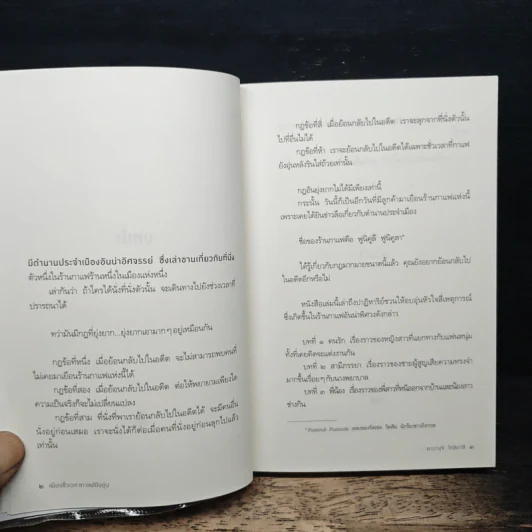 มีตำนานประจำเมืองอันน่าอัศจรรย์ ซึ่งเล่าขานเกี่ยวกับที่นั่ง
ตัวหนึ่งในร้านกาแฟร้านหนึ่งในเมืองแห่งหนึ่ง
เล่ากันว่า ถ้าใครได้นั่งที่นั่งตัวนั้น จะเดินทางไปยังช่วงเวลาที่
ปรารถนาได้
ทว่ามันมีกฎที่ยุ่งยาก...ยุ่งยากเอามาก ๆ อยู่เหมือนกัน
กฎข้อที่หนึ่ง เมื่อย้อนกลับไปในอดีต จะไม่สามารถพบคนที่
ไม่เคยมาเยือนร้านกาแฟแห่งนี้ได้
กฎข้อที่สอง เมื่อย้อนกลับไปในอดีต ต่อให้พยายามเพียงใด
ความเป็นจริงก็จะไม่เปลี่ยนแปลง
กฎข้อที่สาม ที่นั่งที่พาเราย้อนกลับไปในอดีตได้ จะมีคนอื่น
นั่งอยู่ก่อนเสมอ เราจะนั่งได้ก็ต่อเมื่อคนที่นั่งอยู่ก่อนลุกไปแล้ว
เท่านั้น
๒ เพียงชั่วเวลากาแฟยังอุ่น
กฎข้อที่สี่ เมื่อย้อนกลับไปในอดีต เราจะลุกจากที่นั่งตัวนั้น
ไปที่อื่นไม่ได้
กฎข้อที่ห้า เราจะย้อนกลับไปในอดีตได้เฉพาะชั่วเวลาที่กาแฟ
ยังอุ่นหลังรินใส่ถ้วยเท่านั้น
กฎอันยุ่งยากไม่ได้มีเพียงเท่านี้
กระนั้น วันนี้ก็เป็นอีกวันที่มีลูกค้ามาเยือนร้านกาแฟแห่งนี้
เพราะเคยได้ยินข่าวลือเกี่ยวกับตำนานประจำเมือง
ชื่อของร้านกาแฟคือ ฟูนิคูลี ฟูนิคูลา*
ได้รู้เกี่ยวกับกฎมากมายขนาดนี้แล้ว คุณยังอยากย้อนกลับไป
ในอดีตอีกหรือไม่
หนังสือเล่มนี้เล่าถึงปาฏิหาริย์ชวนให้อบอุ่นหัวใจสี่เหตุการณ์
ซึ่งเกิดขึ้นในร้านกาแฟอันน่าพิศวงดังกล่าว
บทที่ ๑ คนรัก เรื่องราวของหญิงสาวที่แยกทางกับแฟนหนุ่ม
ทั้งที่เคยคิดจะแต่งงานกัน
บทที่ ๒ สามีภรรยา เรื่องราวของชายผู้สูญเสียความทรงจำ
มากขึ้นเรื่อยๆ กับนางพยาบาล
บทที่ ๓ พี่น้อง เรื่องราวของพี่สาวที่หนีออกจากบ้านและน้องสาว
ช่างกิน
คาวางุจิ โทชิคาซึ ๓